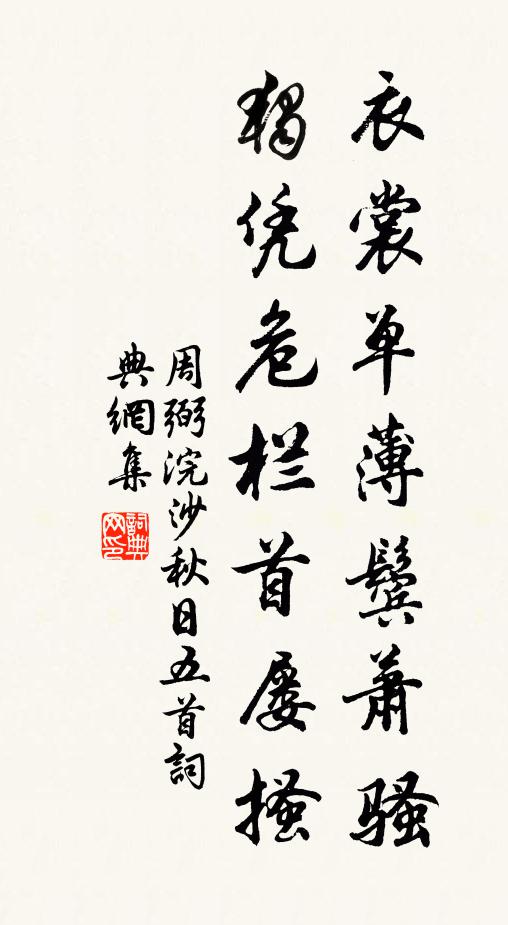 衣裳单薄鬓萧骚
独凭危栏首屡搔
周弼浣沙秋日五首詞
典網集
詞典网印